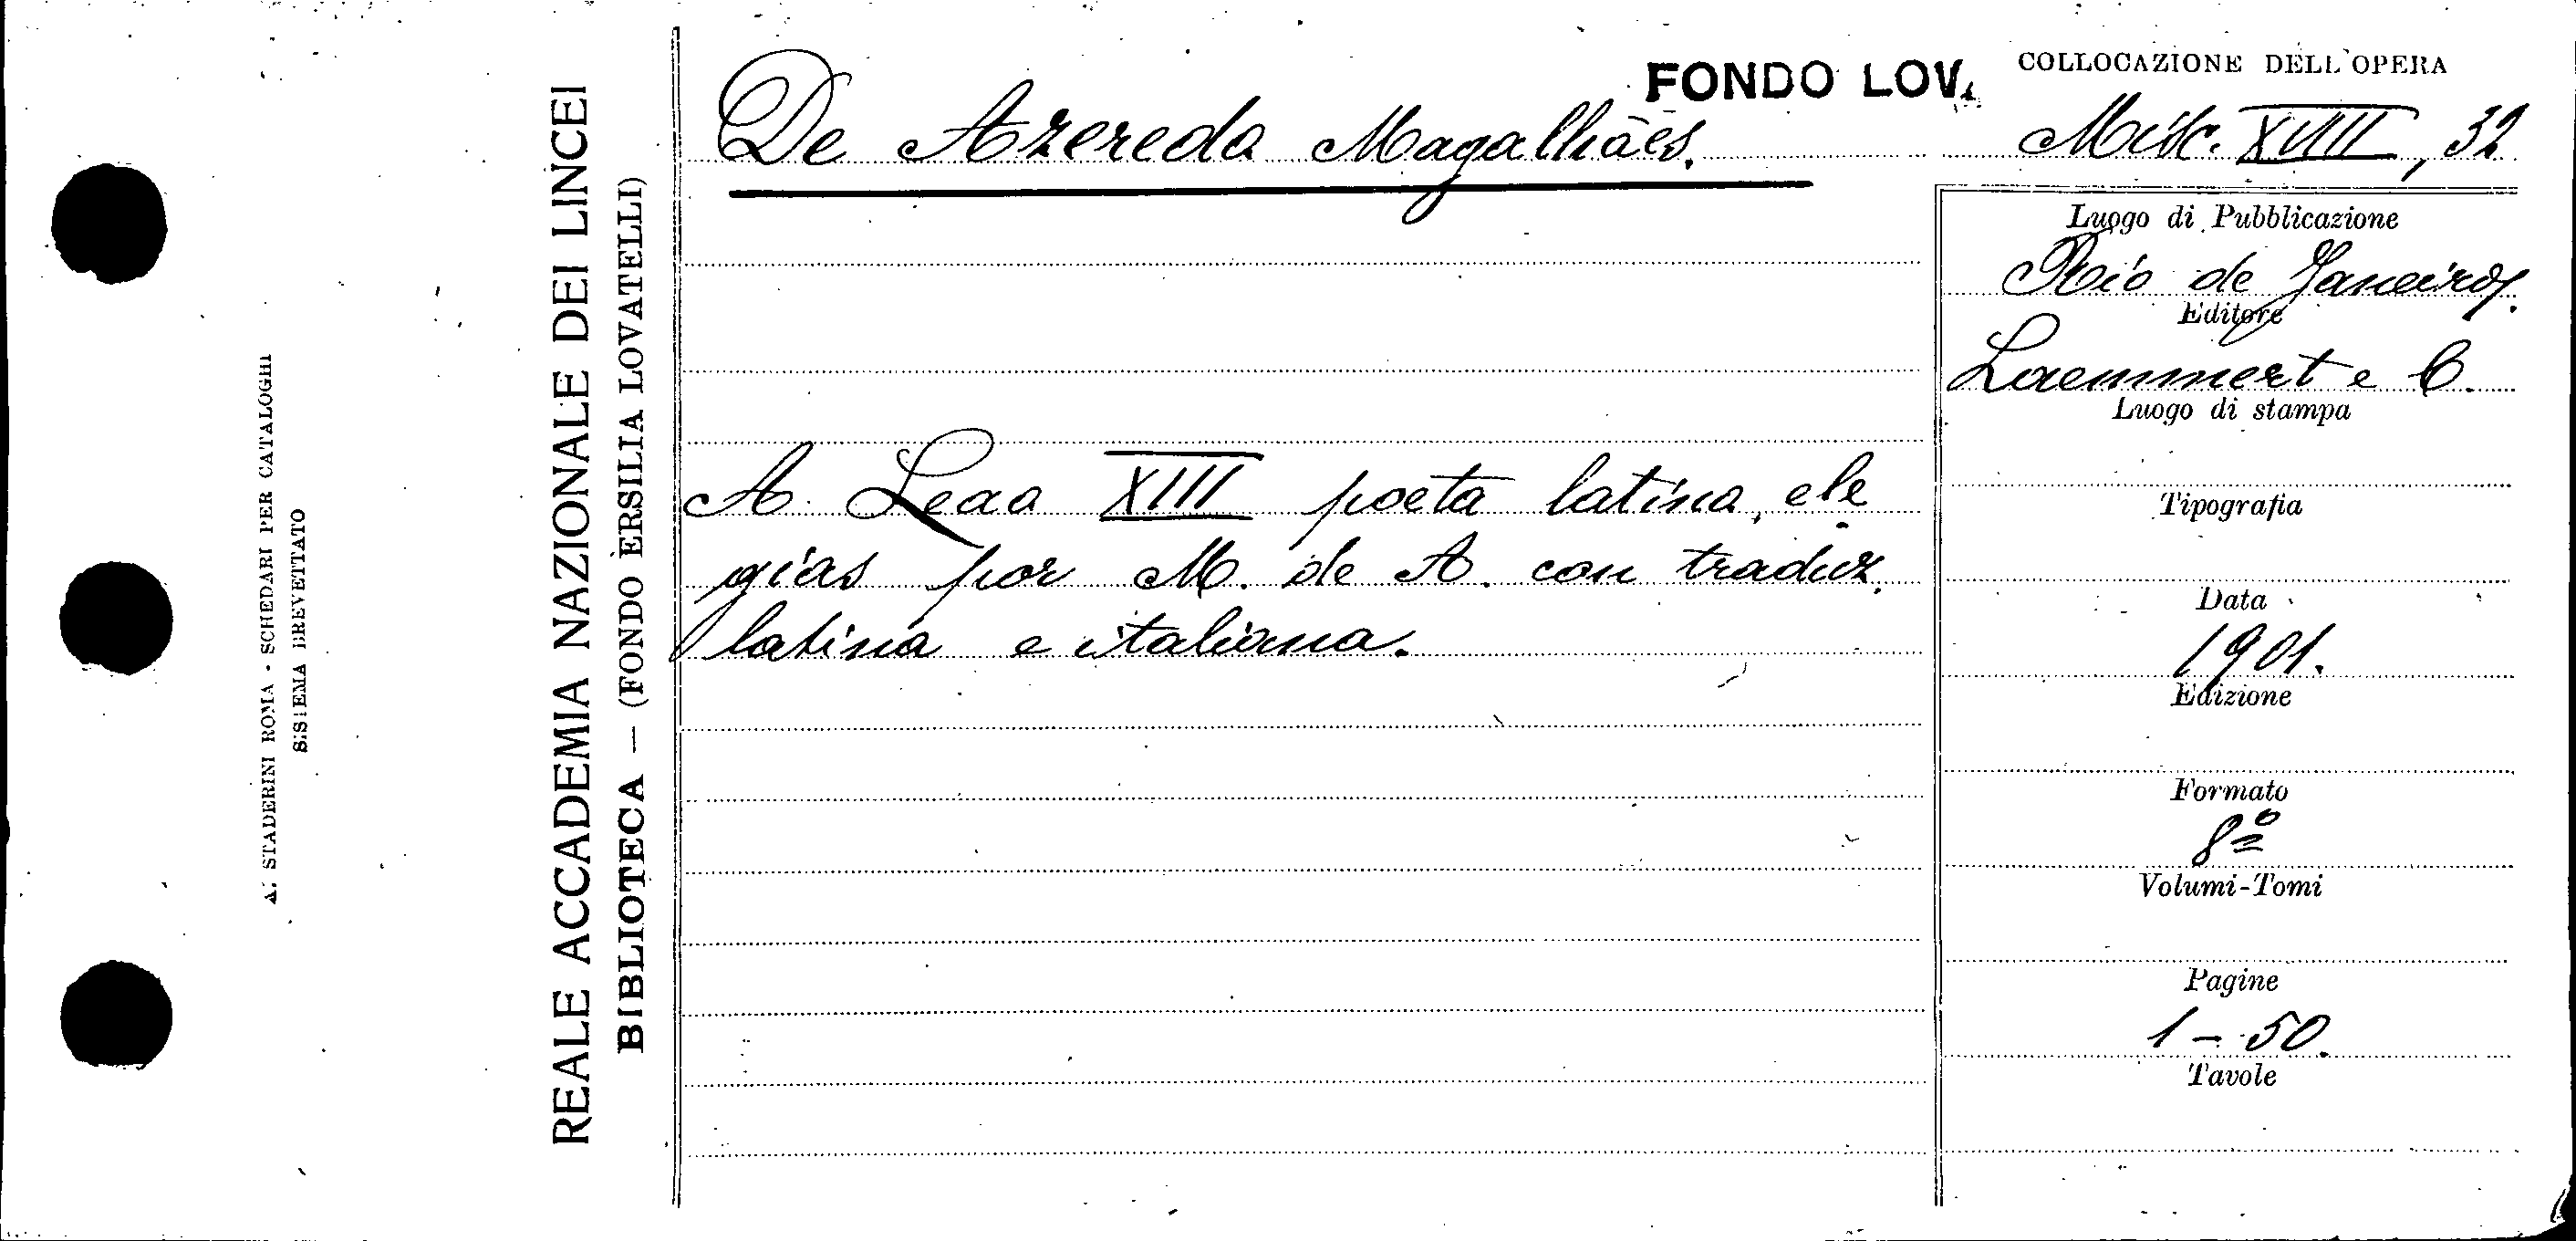 FONDO LOV.
COLLOCAZIONE DELL'OPERA
De Azeredo Magalhães.
Misc. XVIII, 32
Luogo di Pubblicazione
Rio de Janeiro.
Editore
Laemmert e C.
Luogo di stampa
A Leao XIII poeta latino, ele
gias por M. de A. con traduz.
latina e italiana.
Tipografia
Data
1901.
Edizione
Formato
8º
Volumi-Tomi
Pagine
1 - 50.
Tavole
REALE ACCADEMIA NAZIONALE DEI LINCEI
BIBLIOTECA — (FONDO ERSILIA LOVATELLI)
A. STADERINI ROMA - SCHEDARI PER CATALOGHI
SISTEMA BREVETTATO